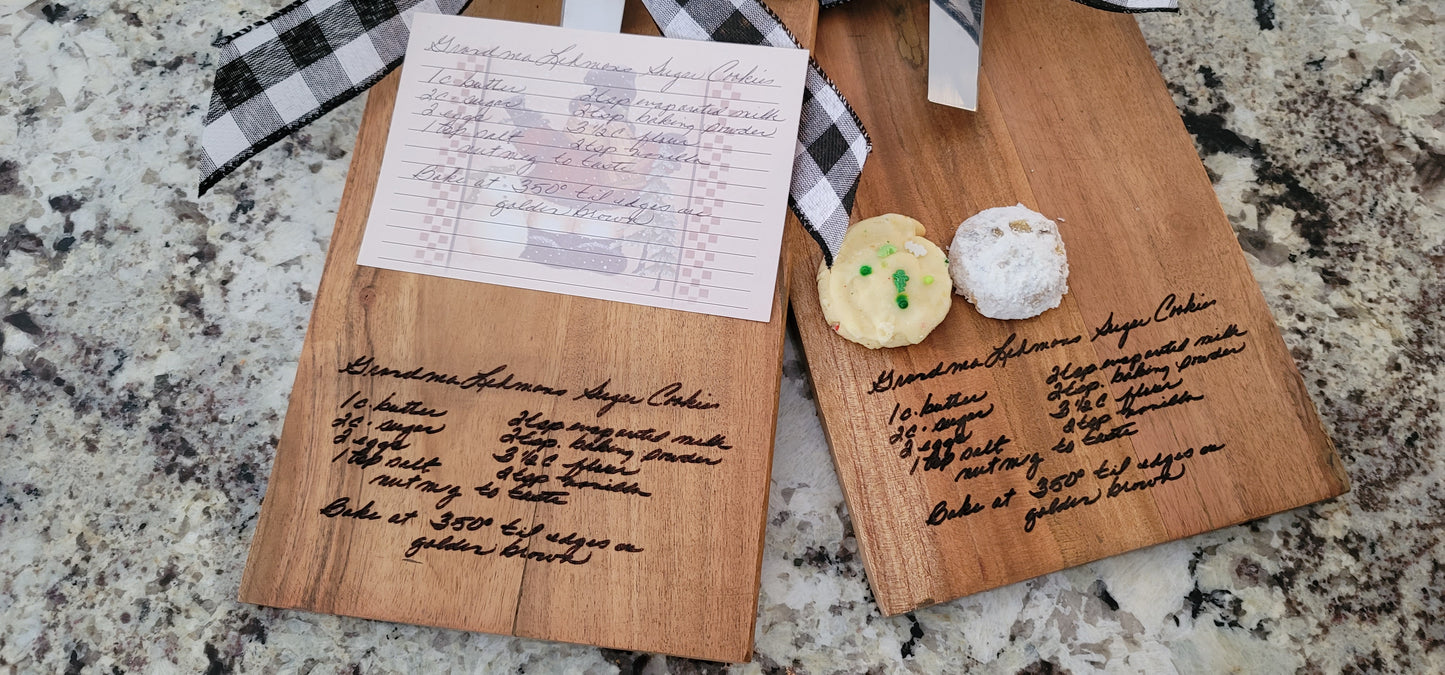 Grandma Lehmans Sugar Cookies
1 c. butter 2 tsp evaporated milk
2 c. sugar 2 tsp. baking powder
2 eggs 3 1/2 c flour
1 tsp salt 2 tsp vanilla
nutmeg to taste
Bake at 350° til edges are
golden brown
Grandma Lehmans Sugar Cookies
1 c. butter 2 tsp evaporated milk
2 c. sugar 2 tsp. baking powder
2 eggs 3 1/2 c flour
1 tsp salt 2 tsp vanilla
nutmeg to taste
Bake at 350° til edges are
golden brown
Grandma Lehmans Sugar Cookies
1 c. butter 2 tsp evaporated milk
2 c. sugar 2 tsp. baking powder
2 eggs 3 1/2 c flour
1 tsp salt 2 tsp vanilla
nutmeg to taste
Bake at 350° til edges are
golden brown